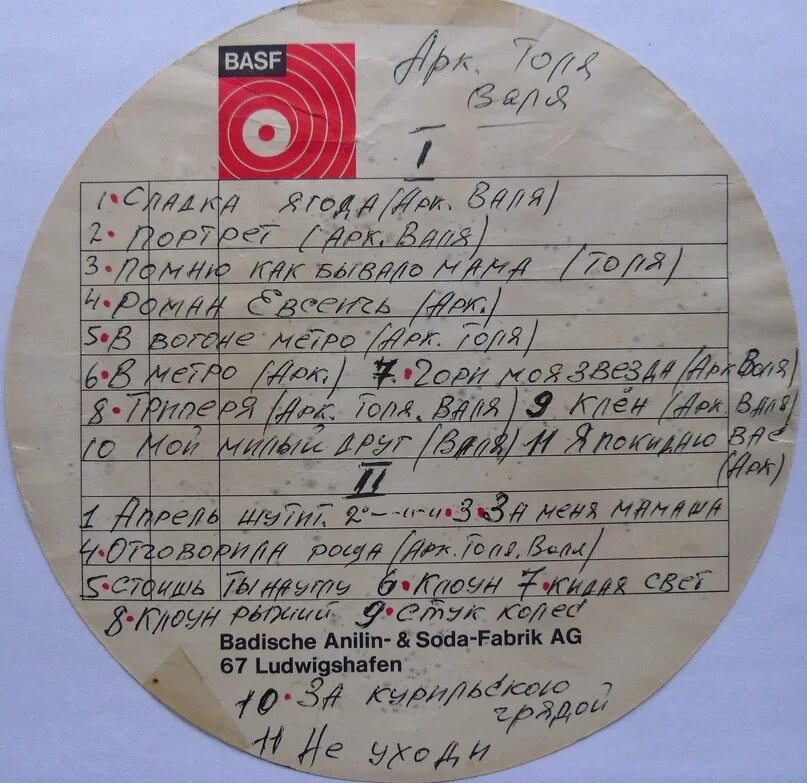 BASF
Арк. Толя
Валя
I
1•Сладка ягода (Арк. Валя)
2•Портрет (Арк. Валя)
3•Помню как бывало мама (Толя)
4•Роман Евсеичь (Арк.)
5•В вогоне метро (Арк. Толя)
6•В метро (Арк.) 7•Гори моя звезда (Арк Валя)
8•Триперя (Арк. Толя. Валя) 9 Клён (Арк. Валя)
10 Мой милый друг (Валя) 11 Я покидаю вас
(Арк)
II
1 Апрель шутит. 2º —„—„•3•За меня мамаша
4•Отговорила роща (Арк. Толя. Валя)
5•Стоишь ты на углу 6•Клоун 7•Кидая свет
8•Клоун рыжий 9•Стук колес
Badische Anilin- & Soda-Fabrik AG
67 Ludwigshafen
10•За курильскою
грядой
11 Не уходи